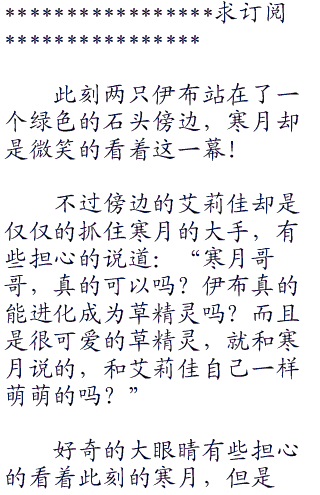 *****************求订阅
****************
此刻两只伊布站在了一
个绿色的石头傍边，寒月却
是微笑的看着这一幕！
不过傍边的艾莉佳却是
仅仅的抓住寒月的大手，有
些担心的说道：“寒月哥
哥，真的可以吗？伊布真的
能进化成为草精灵吗？而且
是很可爱的草精灵，就和寒
月说的，和艾莉佳自己一样
萌萌的吗？”
好奇的大眼睛有些担心
的看着此刻的寒月，但是